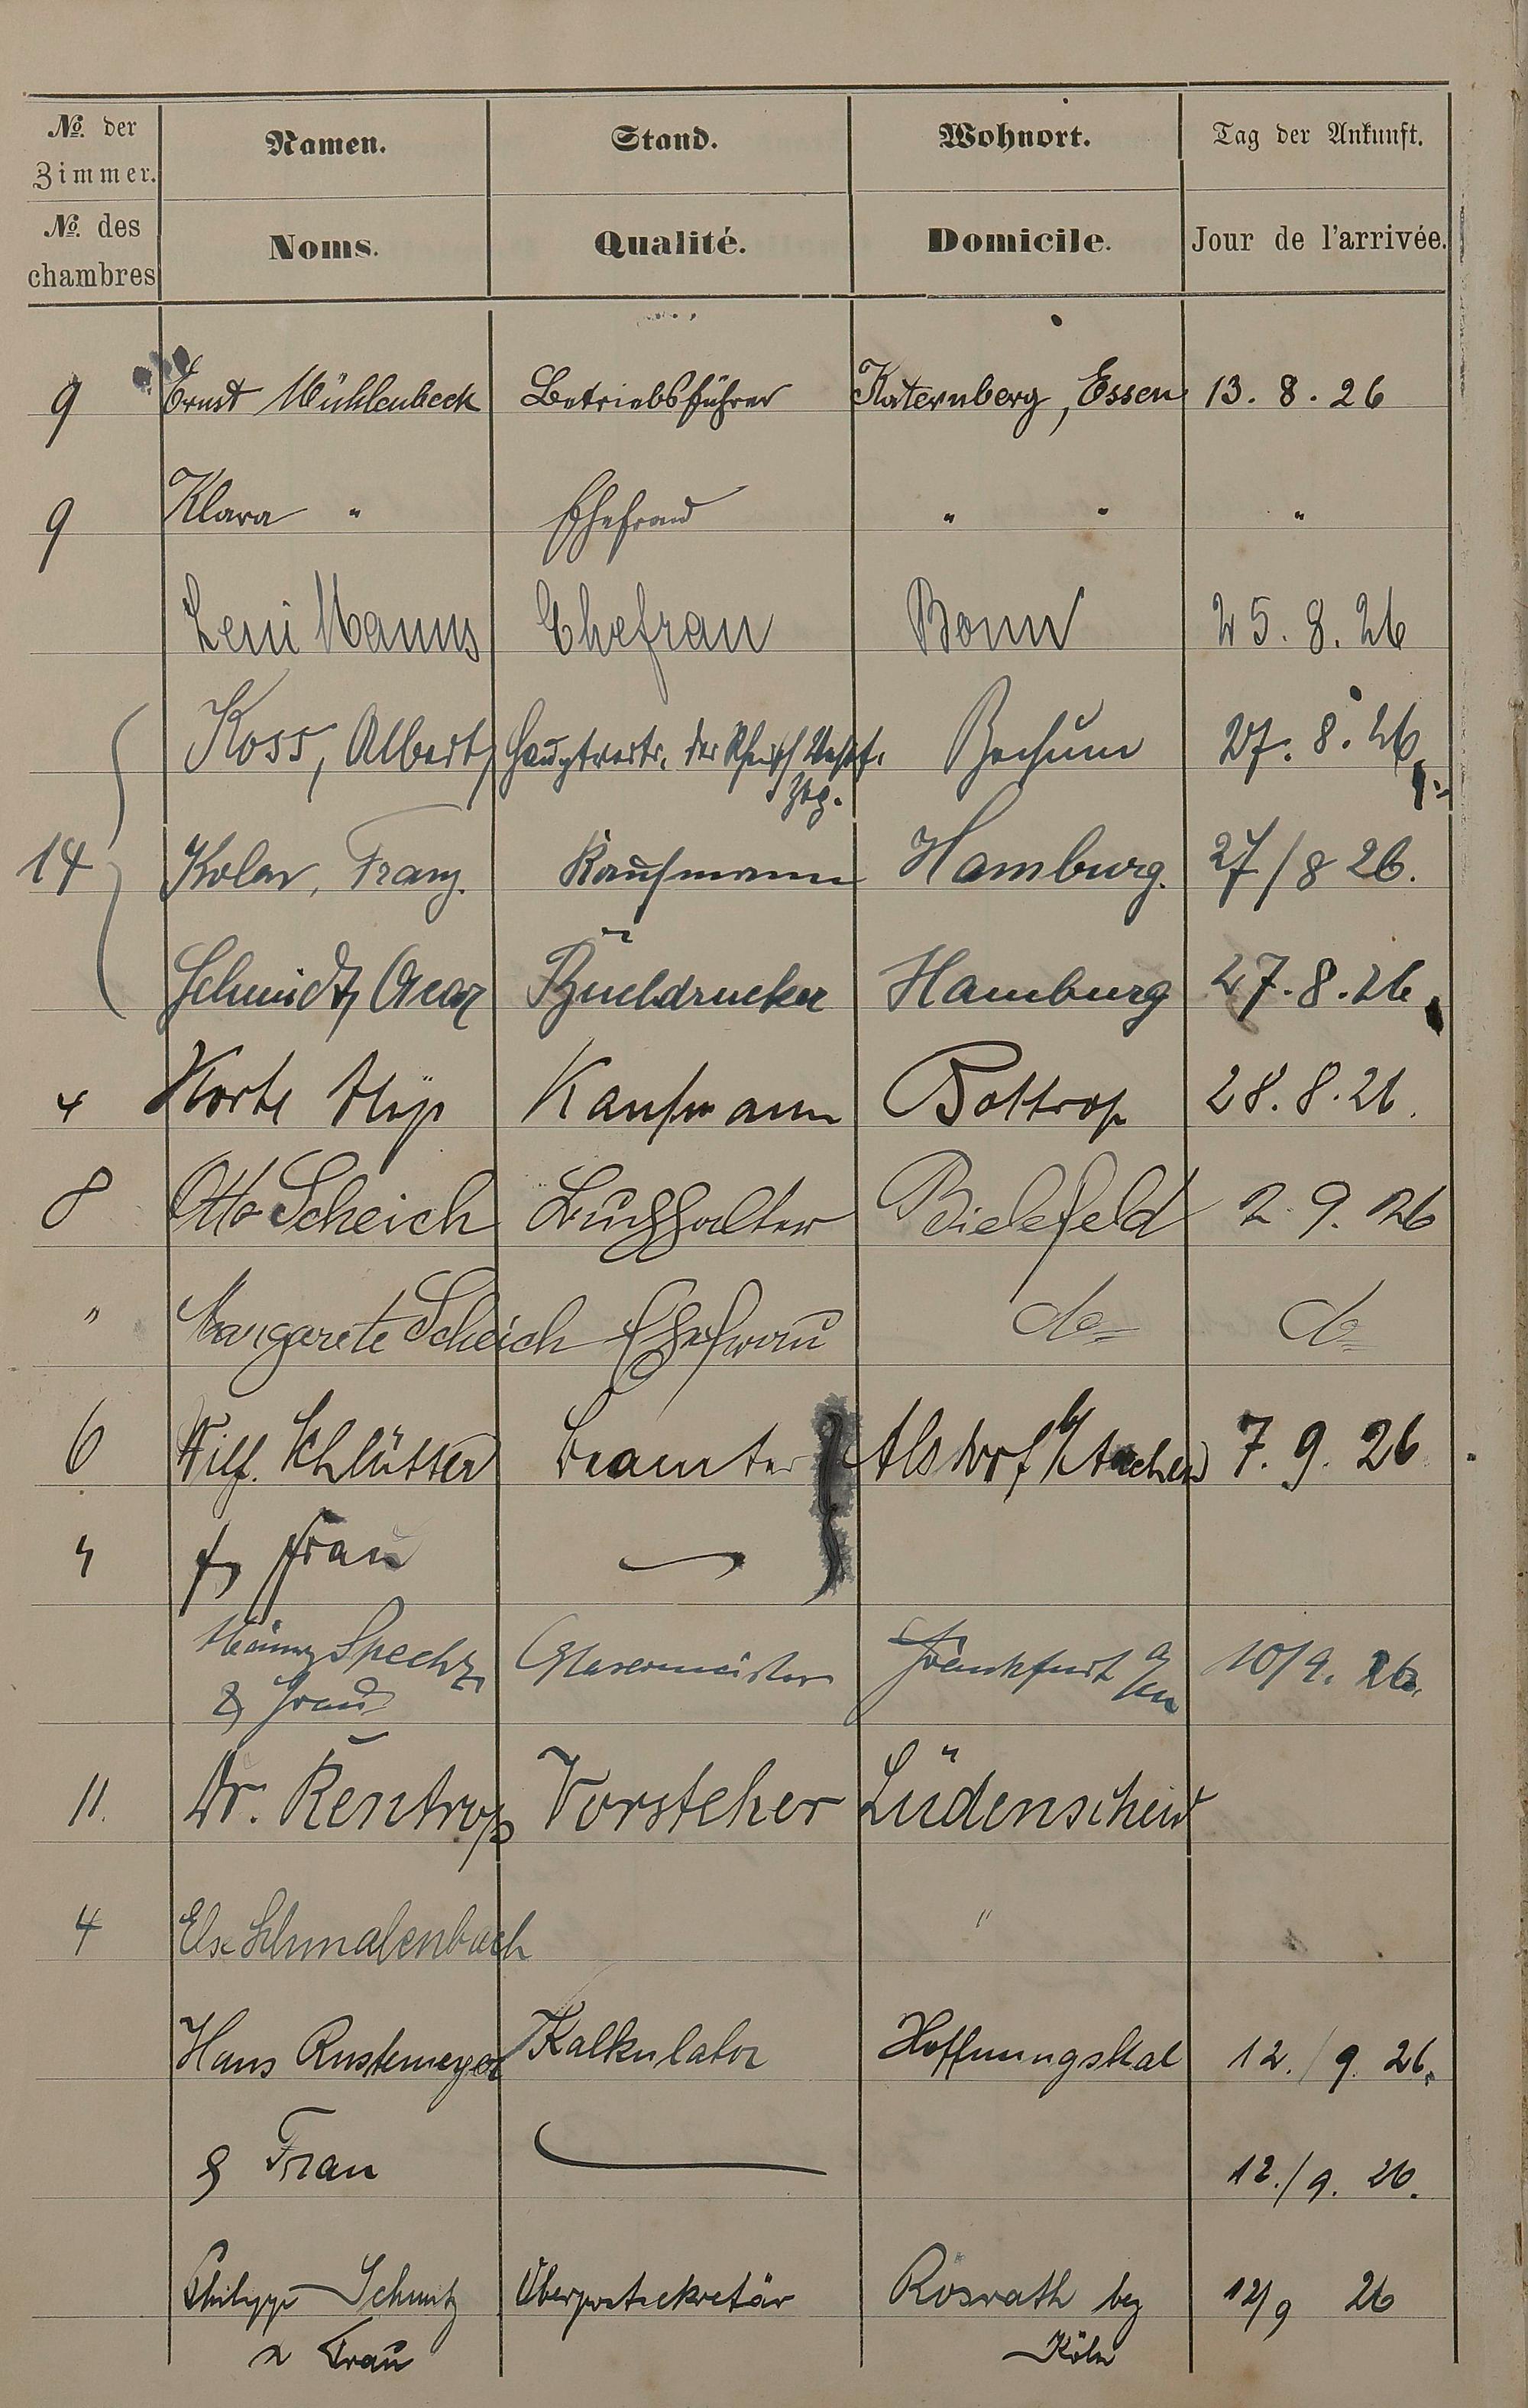 № der Zimmer. Namen. Stand. Wohnort. Tag der Ankunft.
№ des chambres Noms. Qualité. Domicile. Jour de l'arrivée.
9 Ernst Mühlenbeck Betriebsführer Katernberg, Essen 13. 8. 26
9 Klara " Ehefrau " " "
Leni Manns Ehefrau Bonn 25. 8. 26
Koss, Albert, Hauptvertr. der Rheisch Westf. Bochum 27. 8. 26.
Ztg.
14 Koler, Franz. Kaufmann Hamburg. 27/8 26.
Schmidt, Oscar Buchdrucker Hamburg 27. 8. 26.
4 Korte Kaufmann Bottrop 28. 8. 26.
8 Otto Scheich Buchhalter Bielefeld 2. 9. 26
" Margarete Scheich Ehefrau do= do=
6 Wilh. Schlütter Beamter Alsdorf b/Aachen 7. 9. 26
" Frau
Specht Glasermeister Frankfurt a/M 10/9. 26.
& Frau
11. Dr. Rentrop Vorsteher Lüdenscheid
4 Else Schmalenbach "
Hans Rustemeyer Kalkulator Hoffnungsthal 12./9. 26.
& Frau 12./9. 26.
Philipp Schmitz Oberpostsekretär Rösrath bei 12/9 26
u Frau Köln